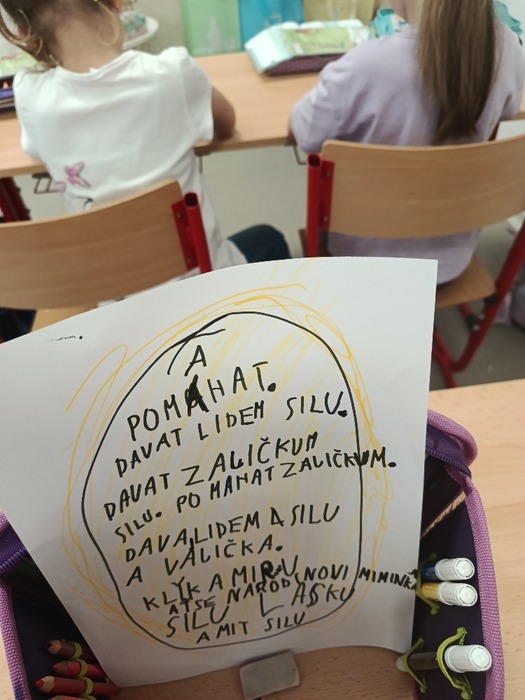 A
POMAHAT.
DAVAT LIDEM SILU.
DAVAT ZALIČKUM
SILU. POMAHAT ZALIČKUM.
DAVALIDEM A SILU
A VALIČKA.
KLYK A MIRU
ATSE NAROD NOVI MIMINKA
SILU LASKU
A MIT SILU